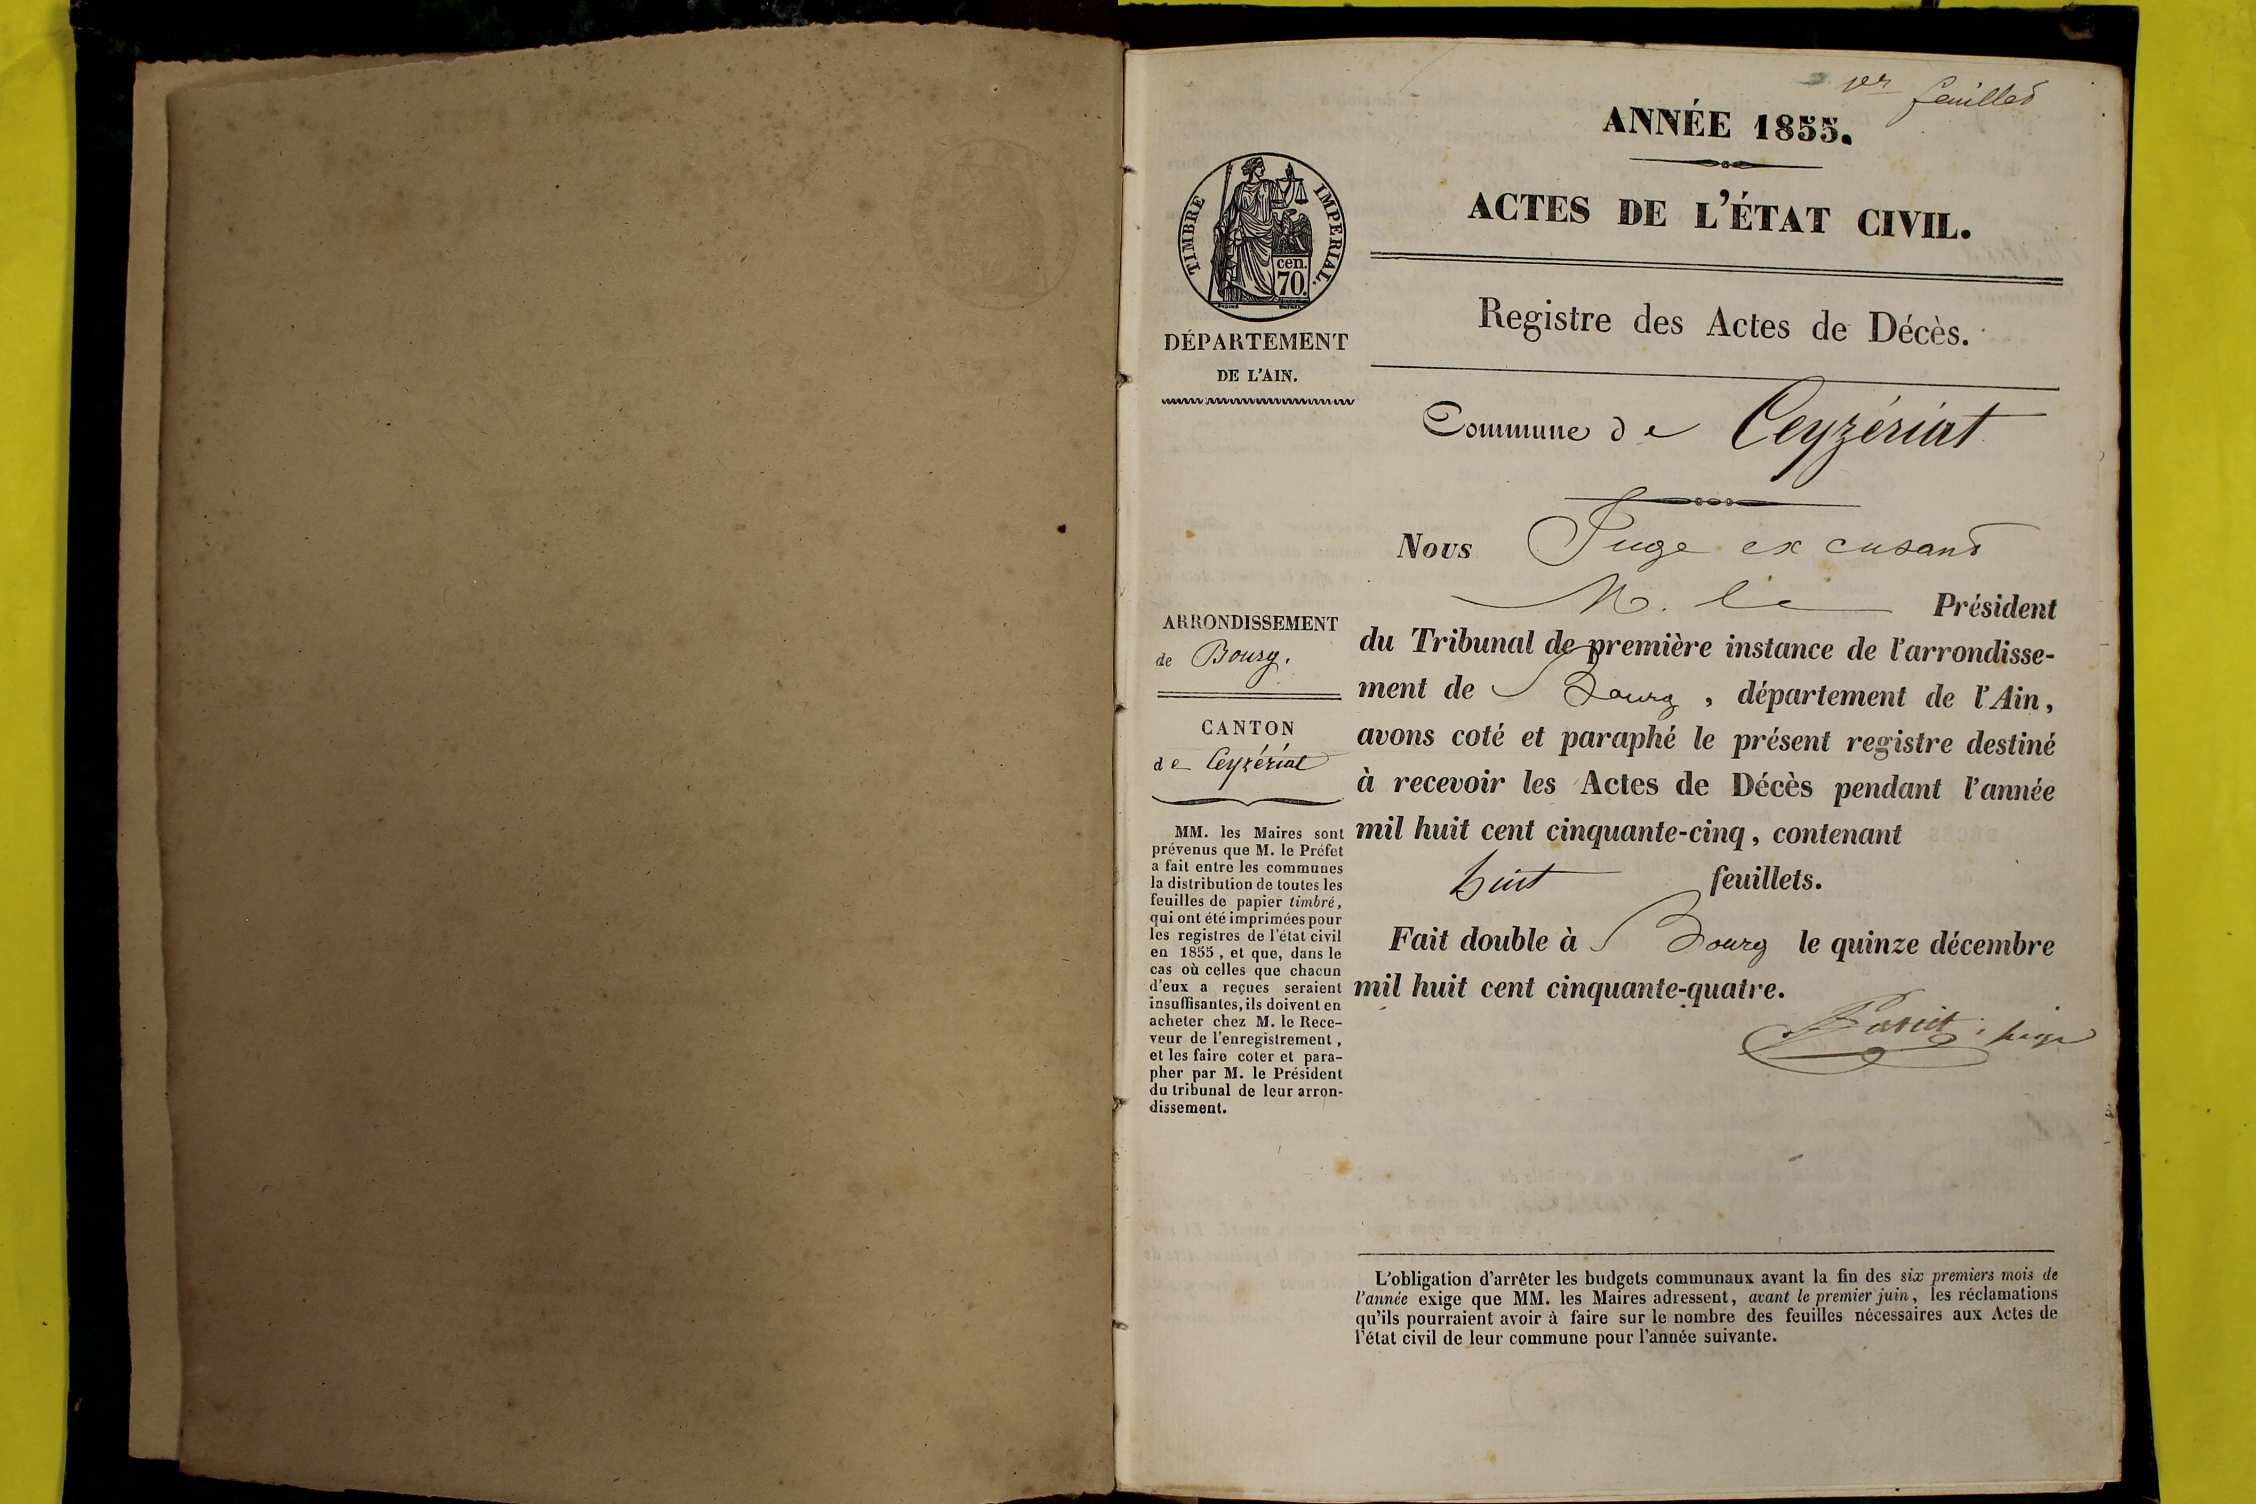 1er feuillet
ANNÉE 1855.
ACTES DE L'ÉTAT CIVIL.
TIMBRE IMPERIAL.
cen.
70.
Registre des Actes de Décès.
DÉPARTEMENT
DE L'AIN.
Commune de Ceyzériat
Nous Juge excusant
M. le Président
du Tribunal de première instance de l'arrondisse-
ment de Bourg, département de l'Ain,
avons coté et paraphé le présent registre destiné
à recevoir les Actes de Décès pendant l'année
mil huit cent cinquante-cinq, contenant
huit feuillets.
Fait double à Bourg le quinze décembre
mil huit cent cinquante-quatre.
juge
ARRONDISSEMENT
de Bourg.
CANTON
de Ceyzériat
MM. les Maires sont
prévenus que M. le Préfet
a fait entre les communes
la distribution de toutes les
feuilles de papier timbré,
qui ont été imprimées pour
les registres de l'état civil
en 1855, et que, dans le
cas où celles que chacun
d'eux a reçues seraient
insuffisantes, ils doivent en
acheter chez M. le Rece-
veur de l'enregistrement,
et les faire coter et para-
pher par M. le Président
du tribunal de leur arron-
dissement.
L'obligation d'arrêter les budgets communaux avant la fin des six premiers mois de
l'année exige que MM. les Maires adressent, avant le premier juin, les réclamations
qu'ils pourraient avoir à faire sur le nombre des feuilles nécessaires aux Actes de
l'état civil de leur commune pour l'année suivante.